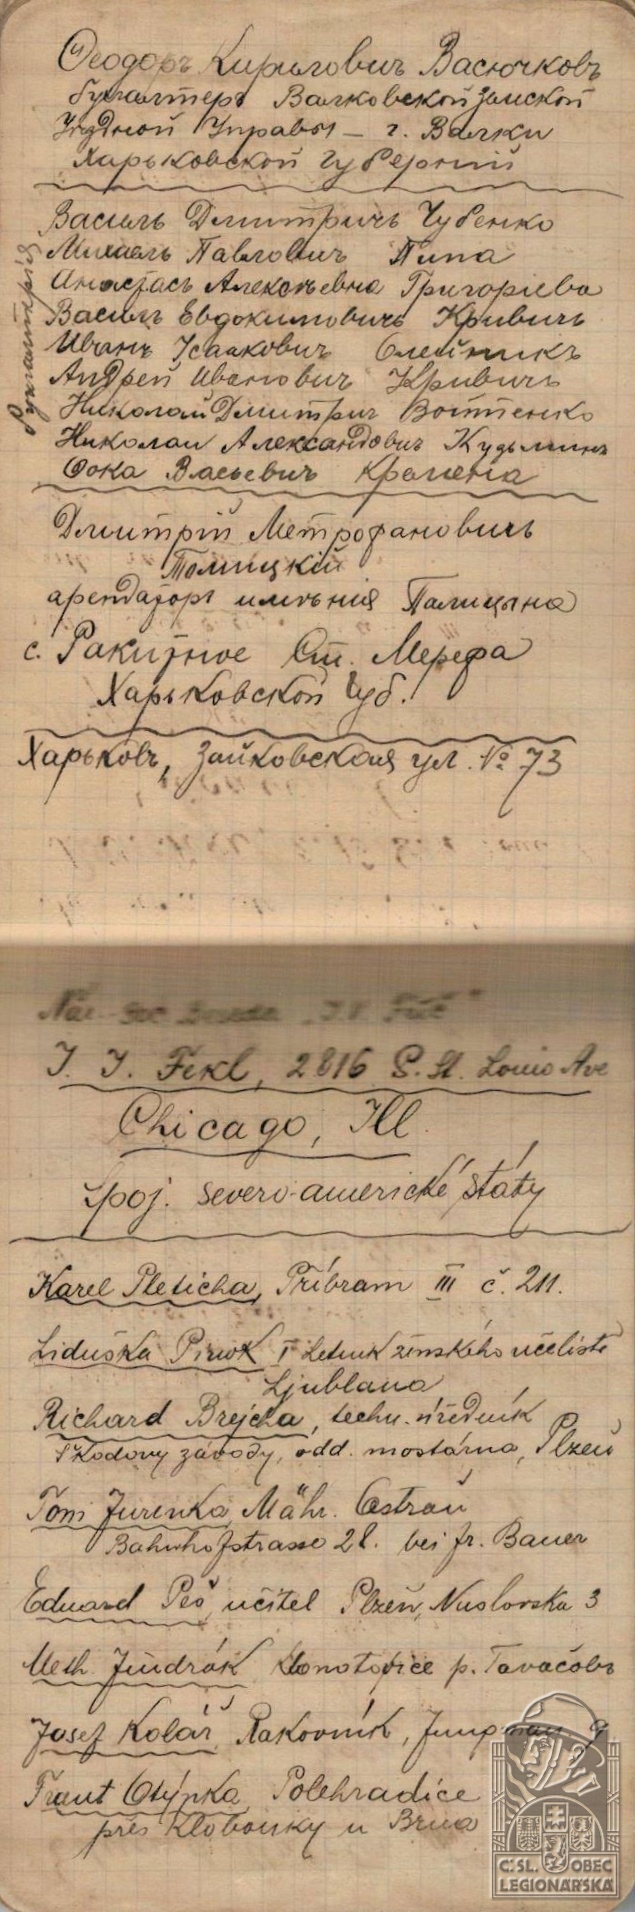 Феодоръ Кирилович Васючковъ
бухгалтеръ Валковской Земской
Уѣздной Управы – г. Валки
Харьковской губерніи
бухгалтерія
Василь Дмитричъ Чубенко
Михаель Павлович Пипа
Анастась Алексѣевна Григоріева
Василь Евдокимовичъ Кривичъ
Иванъ Исаакович Олейникъ
Андрей Иванович Кривичъ
Николай Дмитрич Войтенко
Николаи Александович Кудьминъ
Фока Власьевич
Дмитрій Метрофановичъ
Толицкій
арендаторъ имѣнія Палицына
с. Ракитное Ст. Мерефа
Харьковской губ.
Харьковъ, Заиковская ул. № 73
J. J. Fekl, 2816 S. St. Louis Ave
Chicago, Ill.
Spoj. severo-americké státy
Karel Pleticha, Příbram III č. 211.
Liduška I ženského učeliště
Ljublana
Richard Brejcha, techn. úředník
Škodovy závody, odd. mostárna, Plzeň
Toni Jurenka Mähr. Ostrau
Bahnhofstrasse 28. bei fr. Bauer
Eduard Peš, učitel Plzeň, Nuslovska 3
Meth. Jindrák Klonotovice p. Tovačov
Josef Kolář Rakovník, Jungman 9
Frant Otýpka Polehradice
přes Klobouky u Brna
Č.SL. OBEC
LEGIONÁŘSKÁ